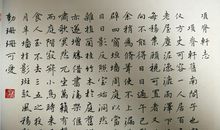 項脊軒志
項脊軒舊南閤子也
僅方丈可容一人居
老屋塵泥滲漉雨澤
每移案顧視無可置
向不能得日日過午已
余稍為修葺使不上
辟四窗垣墻周庭以
日影反照室始洞然
雜植蘭桂竹木於庭舊
亦遂增勝借書滿架
嘯歌冥然兀坐萬籟有
庭階寂寂小鳥時來
食人至不去三五之夜
月半墻桂影斑駁風移
動珊珊可愛